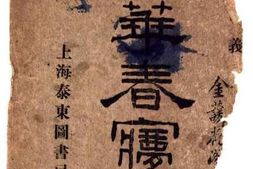 義
金
華春夢
上海泰東圖書